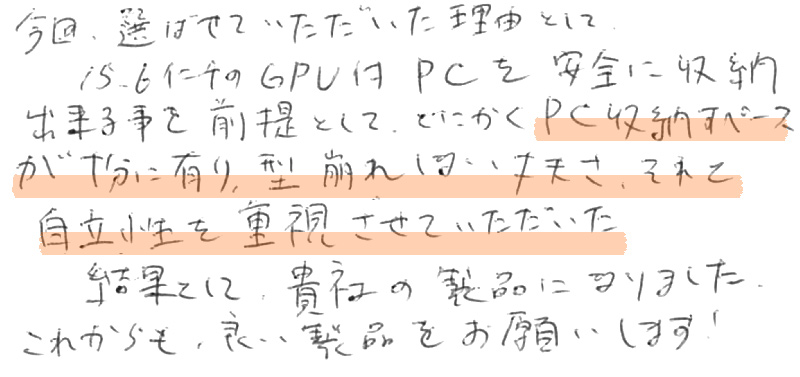 今回、選ばせていただいた理由として、
15.6インチのGPU付PCを安全に収納
出来る事を前提として、とにかくPC収納スペース
が十分に有り、型崩れしない丈夫さ、そして
自立性を重視させていただいた
結果として、貴社の製品になりました。
これからも、良い製品をお願いします!